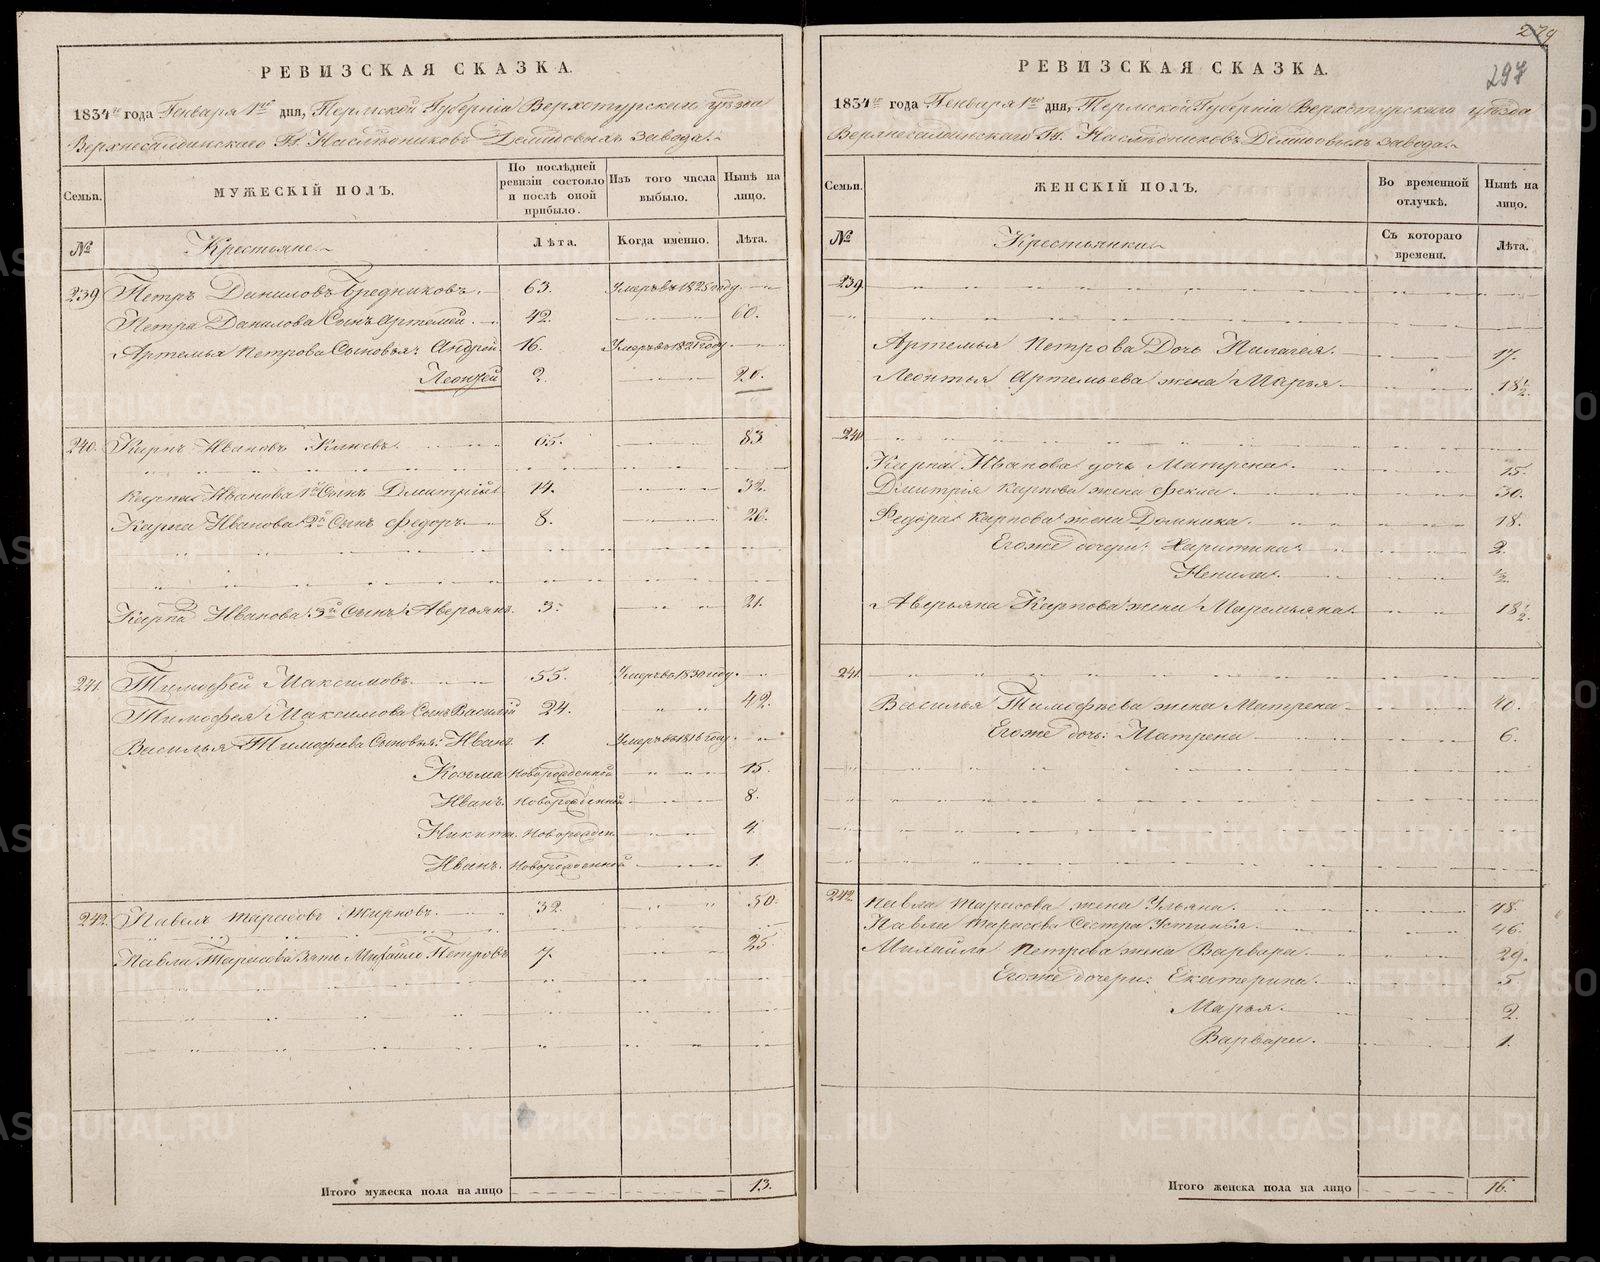 279
297
РЕВИЗСКАЯ СКАЗКА.
1834го года Генваря 1го дня, Пермской Губернiи Верхотурскаго уѣзда
Верхнесалдинскаго Гг. Наслѣдниковъ Демидовыхъ завода.
Семьи. МУЖЕСКIЙ ПОЛЪ. По послѣдней ревизiи состояло и послѣ оной прибыло. Изъ того числа выбыло. Нынѣ на лицо.
№ Крестьяне. Лѣта. Когда именно. Лѣта.
239 Петръ Даниловъ Бредниковъ. 63. Умеръ въ 1825 году.
Петра Данилова Сынъ Артемей. 42. 60.
Артемья Петрова Сыновья: Андрей 16. Умеръ въ 1821 году.
Леонтей 2. 20.
240. Карпъ Ивановъ 65. 83.
Карпа Иванова 1й Сынъ Дмитрiй 14. 32.
Карпа Иванова 2й Сынъ Федоръ. 8. 26.
Карпа Иванова 3й Сынъ Аверьянъ. 3. 21.
241. Тимофей Максимовъ. 55. Умеръ въ 1830 году.
Тимофея Максимова Сынъ Василiй 24. 42.
Василья Тимофеева Сыновья: Иванъ 1. Умеръ въ 1816 году.
Козьма новорожденной 15.
Иванъ. новорожденной 8.
Никита. новорожден. 4.
Иванъ. новорожденной 1.
242. Павелъ Тарасовъ Жирновъ. 32. 50.
Павла Тарасова Зять Михайло Петровъ 7. 25.
Итого мужеска пола на лицо 13.
РЕВИЗСКАЯ СКАЗКА.
1834го года Генваря 1го дня, Пермской Губернiи Верхотурскаго уѣзда
Верхнесалдинскаго Гг. Наслѣдниковъ Демидовыхъ завода.
Семьи. ЖЕНСКIЙ ПОЛЪ. Во временной отлучкѣ. Нынѣ на лицо.
№ Крестьянки. Съ котораго времени. Лѣта.
239.
Артемья Петрова Дочь Пилагея. 17.
Леонтья Артемьева жена Марья. 18½.
240
Карпа Иванова дочь Матрена. 15.
Дмитрiя Карпова жена Фекла. 30.
Федора Карпова жена Домника. 18.
Егоже дочери: Харитина. 2.
Ненила. ½.
Аверьяна Карпова жена Маремьяна. 18½.
241.
Василья Тимофѣева жена Матрена. 40.
Егоже дочь: Матрена 6.
242. Павла Тарасова жена Ульяна. 48.
Павла Тарасова Сестра Устинья. 46.
Михайла Петрова жена Варвара. 29.
Егоже дочери: Екатерина. 5
Марья. 2.
Варвара. 1.
Итого женска пола на лицо 16.
METRIKI.GASO-URAL.RU